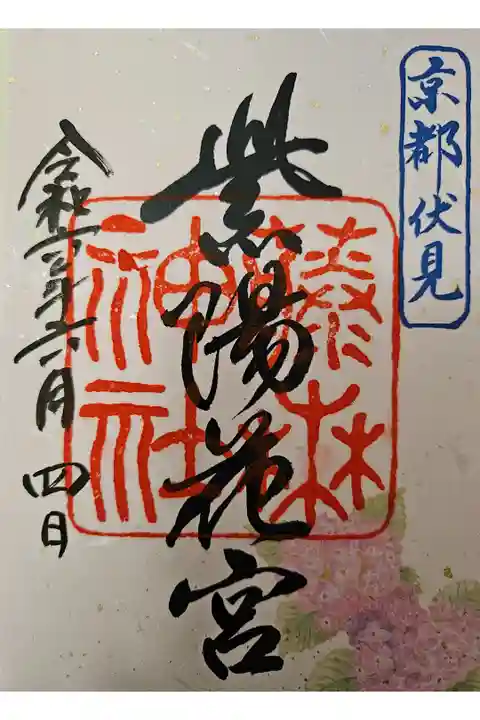 京都伏見
紫陽花宮
藤森
神社
令和 年六月四日